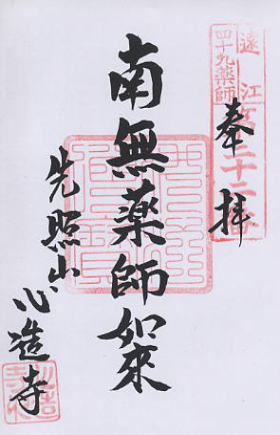 遠江
四十九薬師
第三十二番
奉拝
南無薬師如来
先照山
心造寺